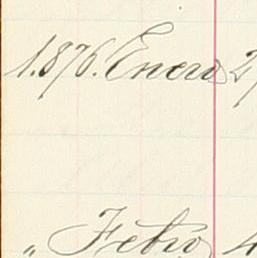 1.876. Enero 2
" Febro 4